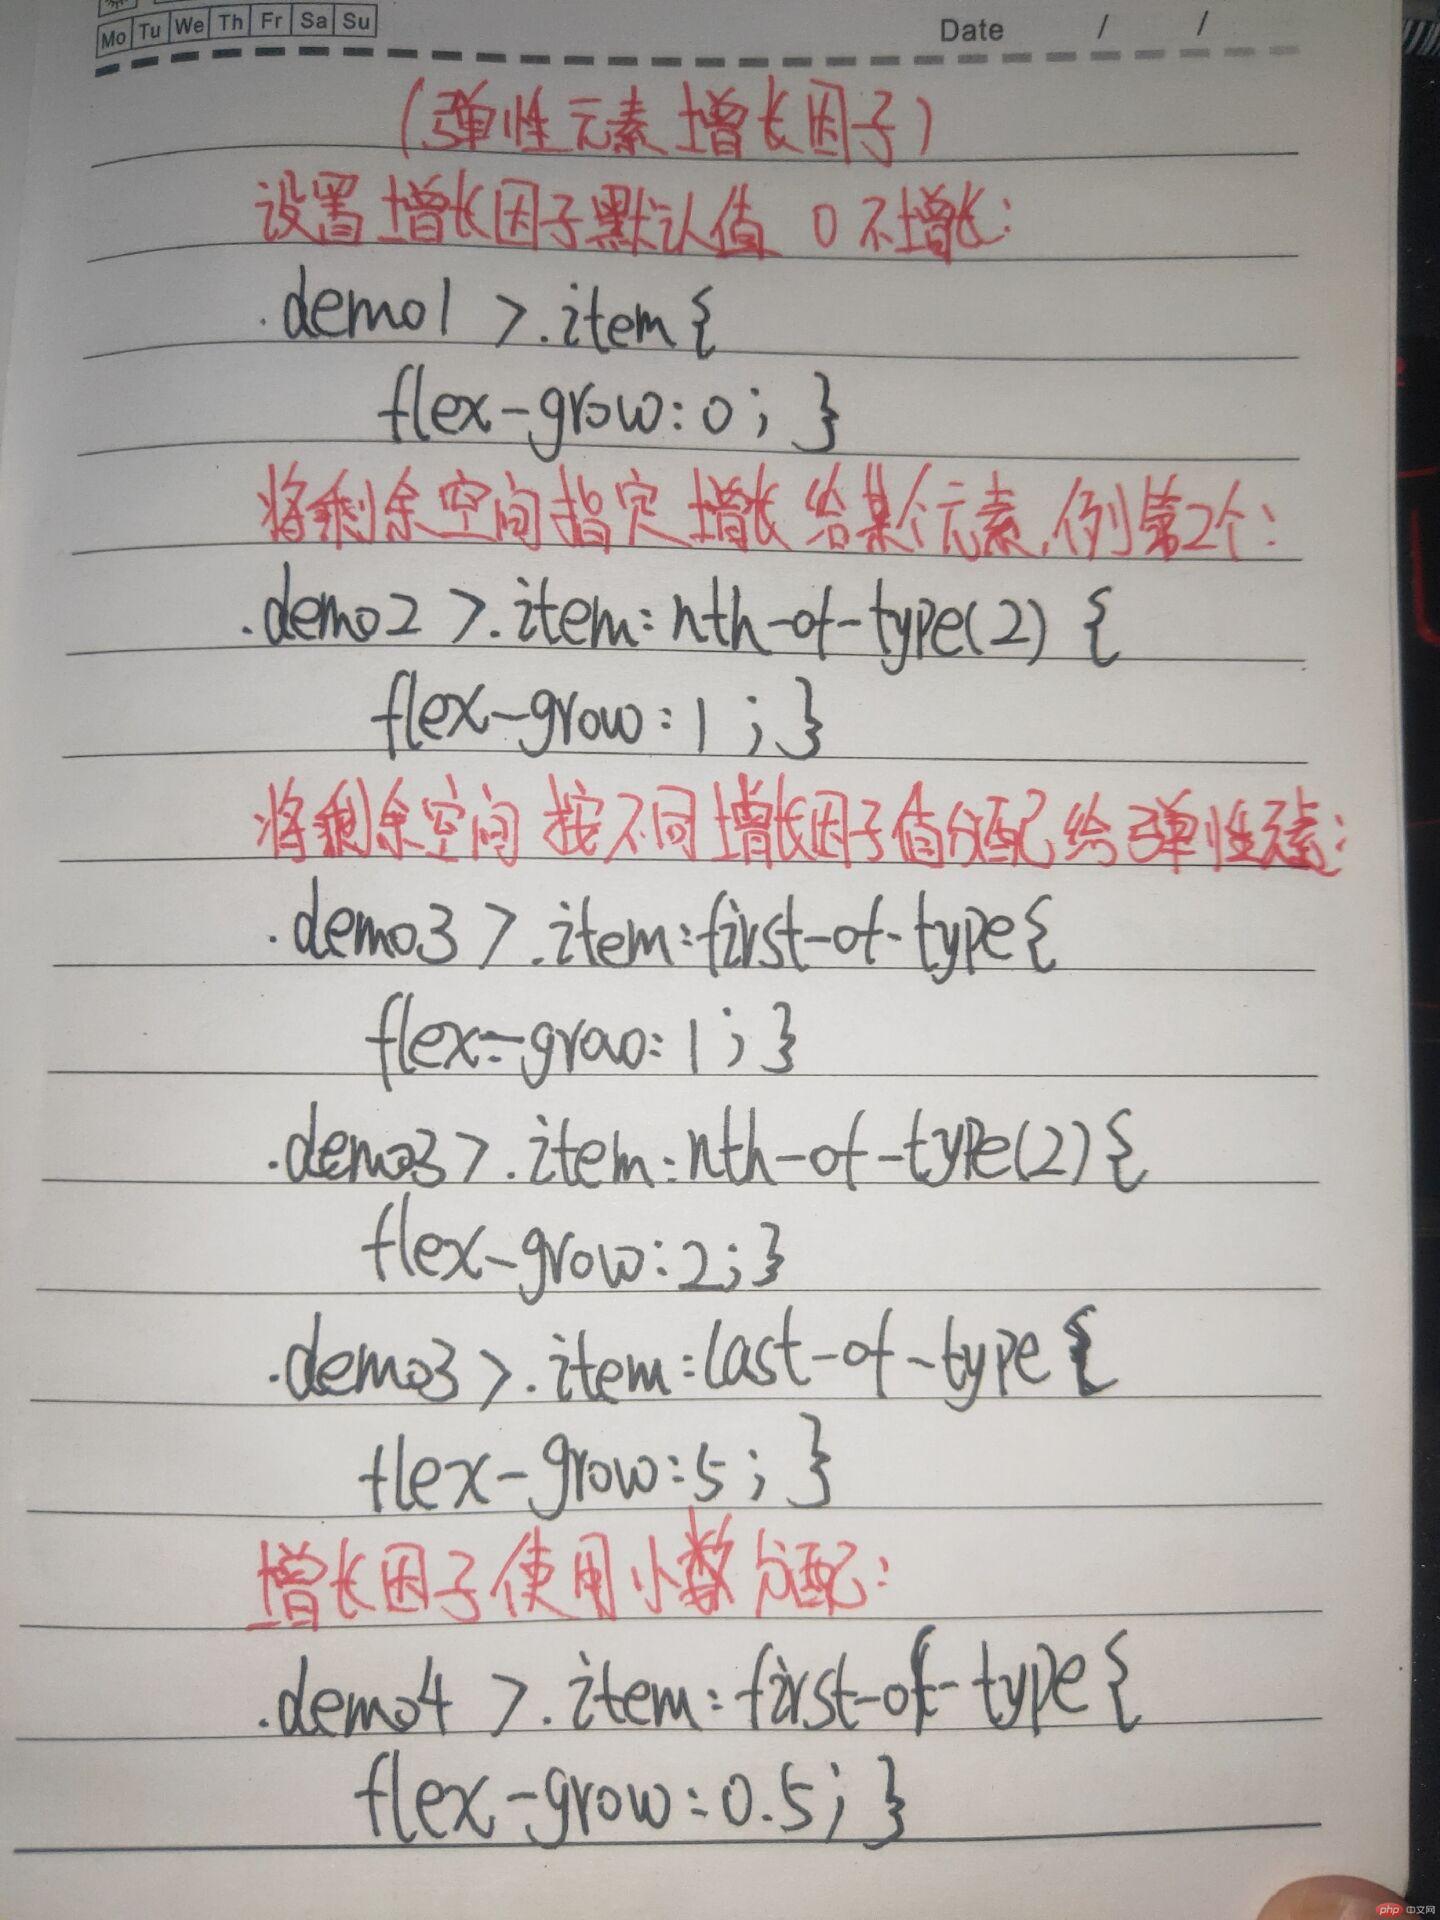 Mo Tu We Th Fr Sa Su
Date / /
(弹性元素增长因子)
设置增长因子默认值 0 不增长:
.demo1 >.item{
flex-grow:0; }
将剩余空间指定增长给某个元素,例第2个:
.demo2 >.item:nth-of-type(2) {
flex-grow:1 ; }
将剩余空间按不同增长因子值分配给弹性元素:
.demo3 >.item:first-of-type{
flex-grow:1; }
.demo3>.item:nth-of-type(2){
flex-grow:2;}
.demo3>.item:last-of-type{
flex-grow:5; }
增长因子使用小数分配:
.demo4 >.item:first-of-type{
flex-grow:0.5; }
php 中文网